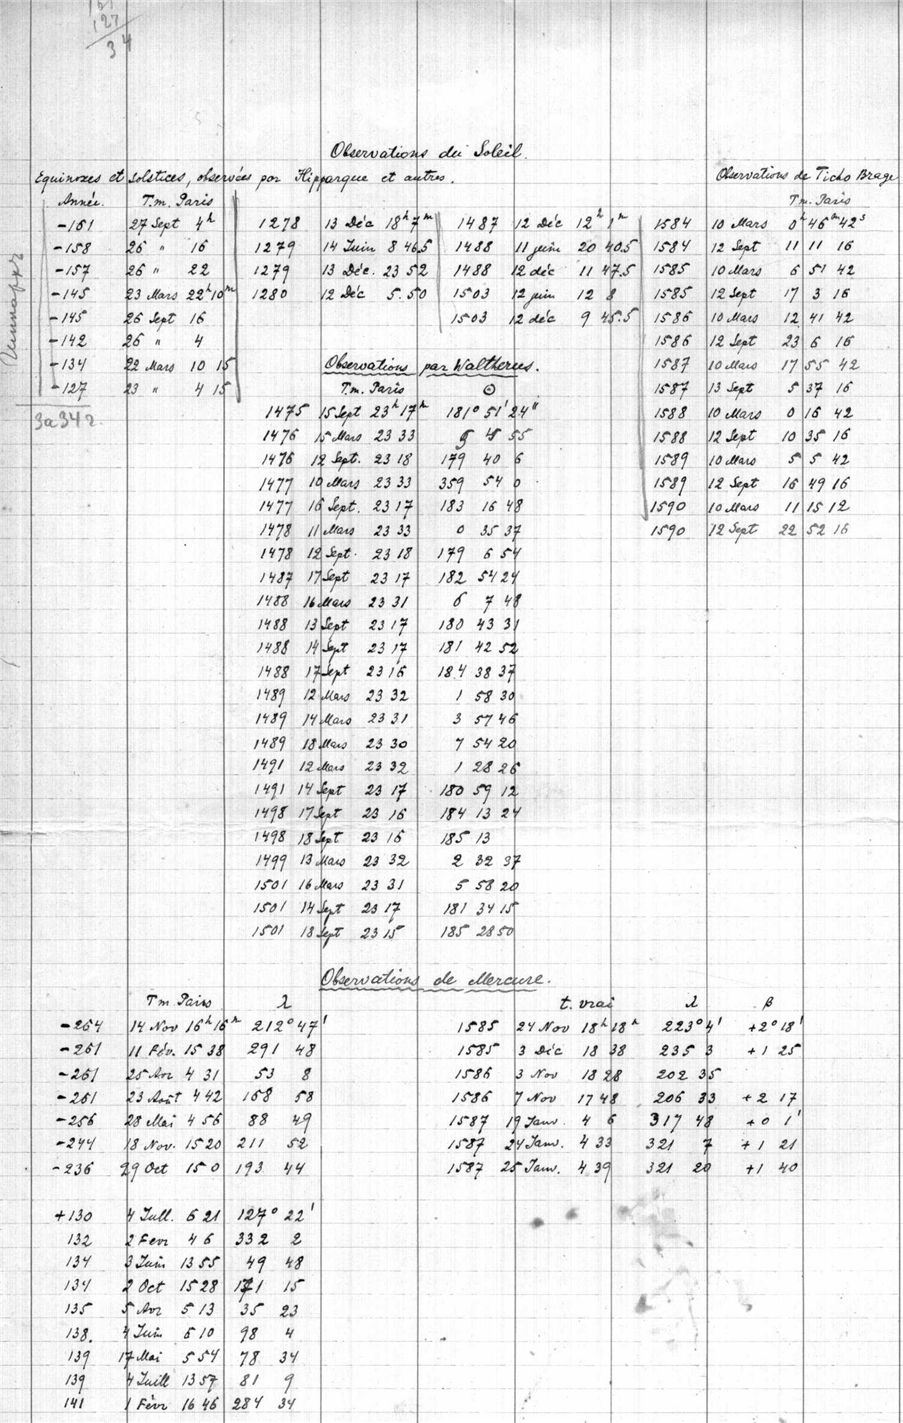 127
34
Observations du Soleil.
Equinoxes et Solstices, observées par Hipparque et autres.
Observations de Ticho Brage
Année. T.m. Paris
T.m. Paris
-161 27 Sept 4h
-158 26 " 16
-157 26 " 22
-145 23 Mars 22h 10m
-145 26 Sept 16
-142 26 " 4
-134 22 Mars 10 15
-127 23 " 4 15
1278 13 Déc 18h 7m
1279 14 Juin 8 46.5
1279 13 Déc. 23 52
1280 12 Déc 5.50
1487 12 Déc 12h 1m
1488 11 juin 20 40.5
1488 12 déc 11 47.5
1503 12 juin 12 8
1503 12 déc 9 45.5
1584 10 Mars 0h 46m 42s
1584 12 Sept 11 11 16
1585 10 Mars 6 51 42
1585 12 Sept 17 3 16
1586 10 Mars 12 41 42
1586 12 Sept 23 6 16
1587 10 Mars 17 55 42
1587 13 Sept 5 37 16
1588 10 Mars 0 16 42
1588 12 Sept 10 35 16
1589 10 Mars 5 5 42
1589 12 Sept 16 49 16
1590 10 Mars 11 15 12
1590 12 Sept 22 52 16
Observations par Waltherus.
T.m. Paris ⊙
1475 15 Sept 23h 17m 181° 51' 24"
1476 15 Mars 23 33 55
1476 12 Sept. 23 18 179 40 6
1477 10 Mars 23 33 359 54 0
1477 16 Sept. 23 17 183 16 48
1478 11 Mars 23 33 0 35 37
1478 12 Sept. 23 18 179 6 54
1487 17 Sept 23 17 182 54 24
1488 16 Mars 23 31 6 7 48
1488 13 Sept 23 17 180 43 31
1488 14 Sept 23 17 181 42 52
1488 17 Sept 23 16 184 38 37
1489 12 Mars 23 32 1 58 30
1489 14 Mars 23 31 3 57 46
1489 18 Mars 23 30 7 54 20
1491 12 Mars 23 32 1 28 26
1491 14 Sept 23 17 180 59 12
1498 17 Sept 23 16 184 13 24
1498 18 Sept 23 16 185 13
1499 13 Mars 23 32 2 32 37
1501 16 Mars 23 31 5 58 20
1501 14 Sept 23 17 181 34 15
1501 18 Sept 23 15 185 28 50
Observations de Mercure.
T.m. Paris λ
-264 14 Nov 16h 16m 212° 47'
-261 11 Fév. 15 38 291 48
-261 25 Avr 4 31 53 8
-261 23 Août 4 42 168 58
-256 28 Mai 4 56 88 49
-244 18 Nov. 15 20 211 52
-236 29 Oct 15 0 193 44
+130 4 Juill. 6 21 127° 22'
132 2 Fevr 4 6 332 2
134 3 Juin 13 55 49 48
134 2 Oct 15 28 171 15
135 5 Avr 5 13 35 23
138. 4 Juin 6 10 98 4
139 17 Mai 5 54 78 34
139 4 Juill 13 57 81 9
141 1 Févr 16 46 284 34
t. vrai λ β
1585 24 Nov 18h 18m 223° 4' +2° 18'
1585 3 Déc 18 38 235 3 +1 25
1586 3 Nov 18 28 202 35
1586 7 Nov 17 48 206 33 +2 17
1587 19 Janv. 4 6 317 48 +0 1'
1587 24 Janv. 4 33 321 7 +1 21
1587 25 Janv. 4 39 321 20 +1 40